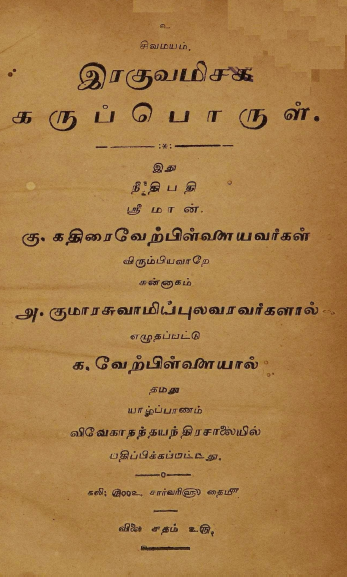 உ
சிவமயம்.
இரகுவமிசக்
கருப்பொருள்.
இது
நீதிபதி
ஸ்ரீமான்.
கு. கதிரைவேற்பிள்ளையவர்கள்
விரும்பியவாறே
சுன்னாகம்
அ. குமாரசுவாமிப்புலவரவர்களால்
எழுதப்பட்டு
க. வேற்பிள்ளையால்
தமது
யாழ்ப்பாணம்
விவேகாநந்தயந்திரசாலையில்
பதிப்பிக்கப்பட்டது.
கலி; சார்வரி௵ தை௴
விலை சதம் உரு.